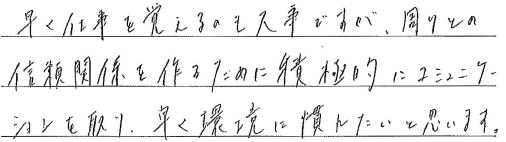 早く仕事を覚えるのも大事ですが、周りとの
信頼関係を作るために積極的にコミュニケー
ションを取り、早く環境に慣れたいと思います。